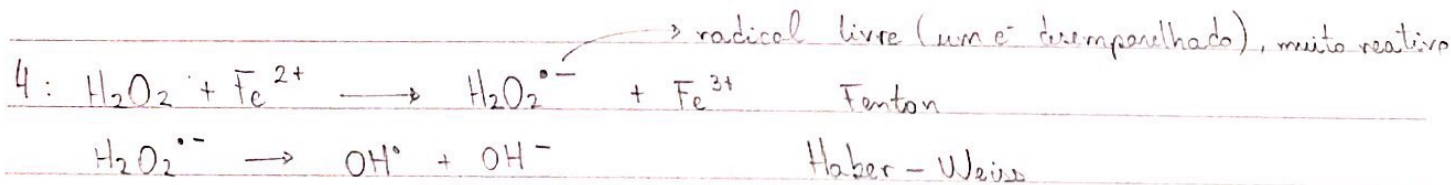 → radical livre (um e⁻ desemparelhado), muito reativo
4: H₂O₂ + Fe²⁺ → H₂O₂•⁻ + Fe³⁺ Fenton
H₂O₂•⁻ → OH• + OH⁻ Haber-Weiss